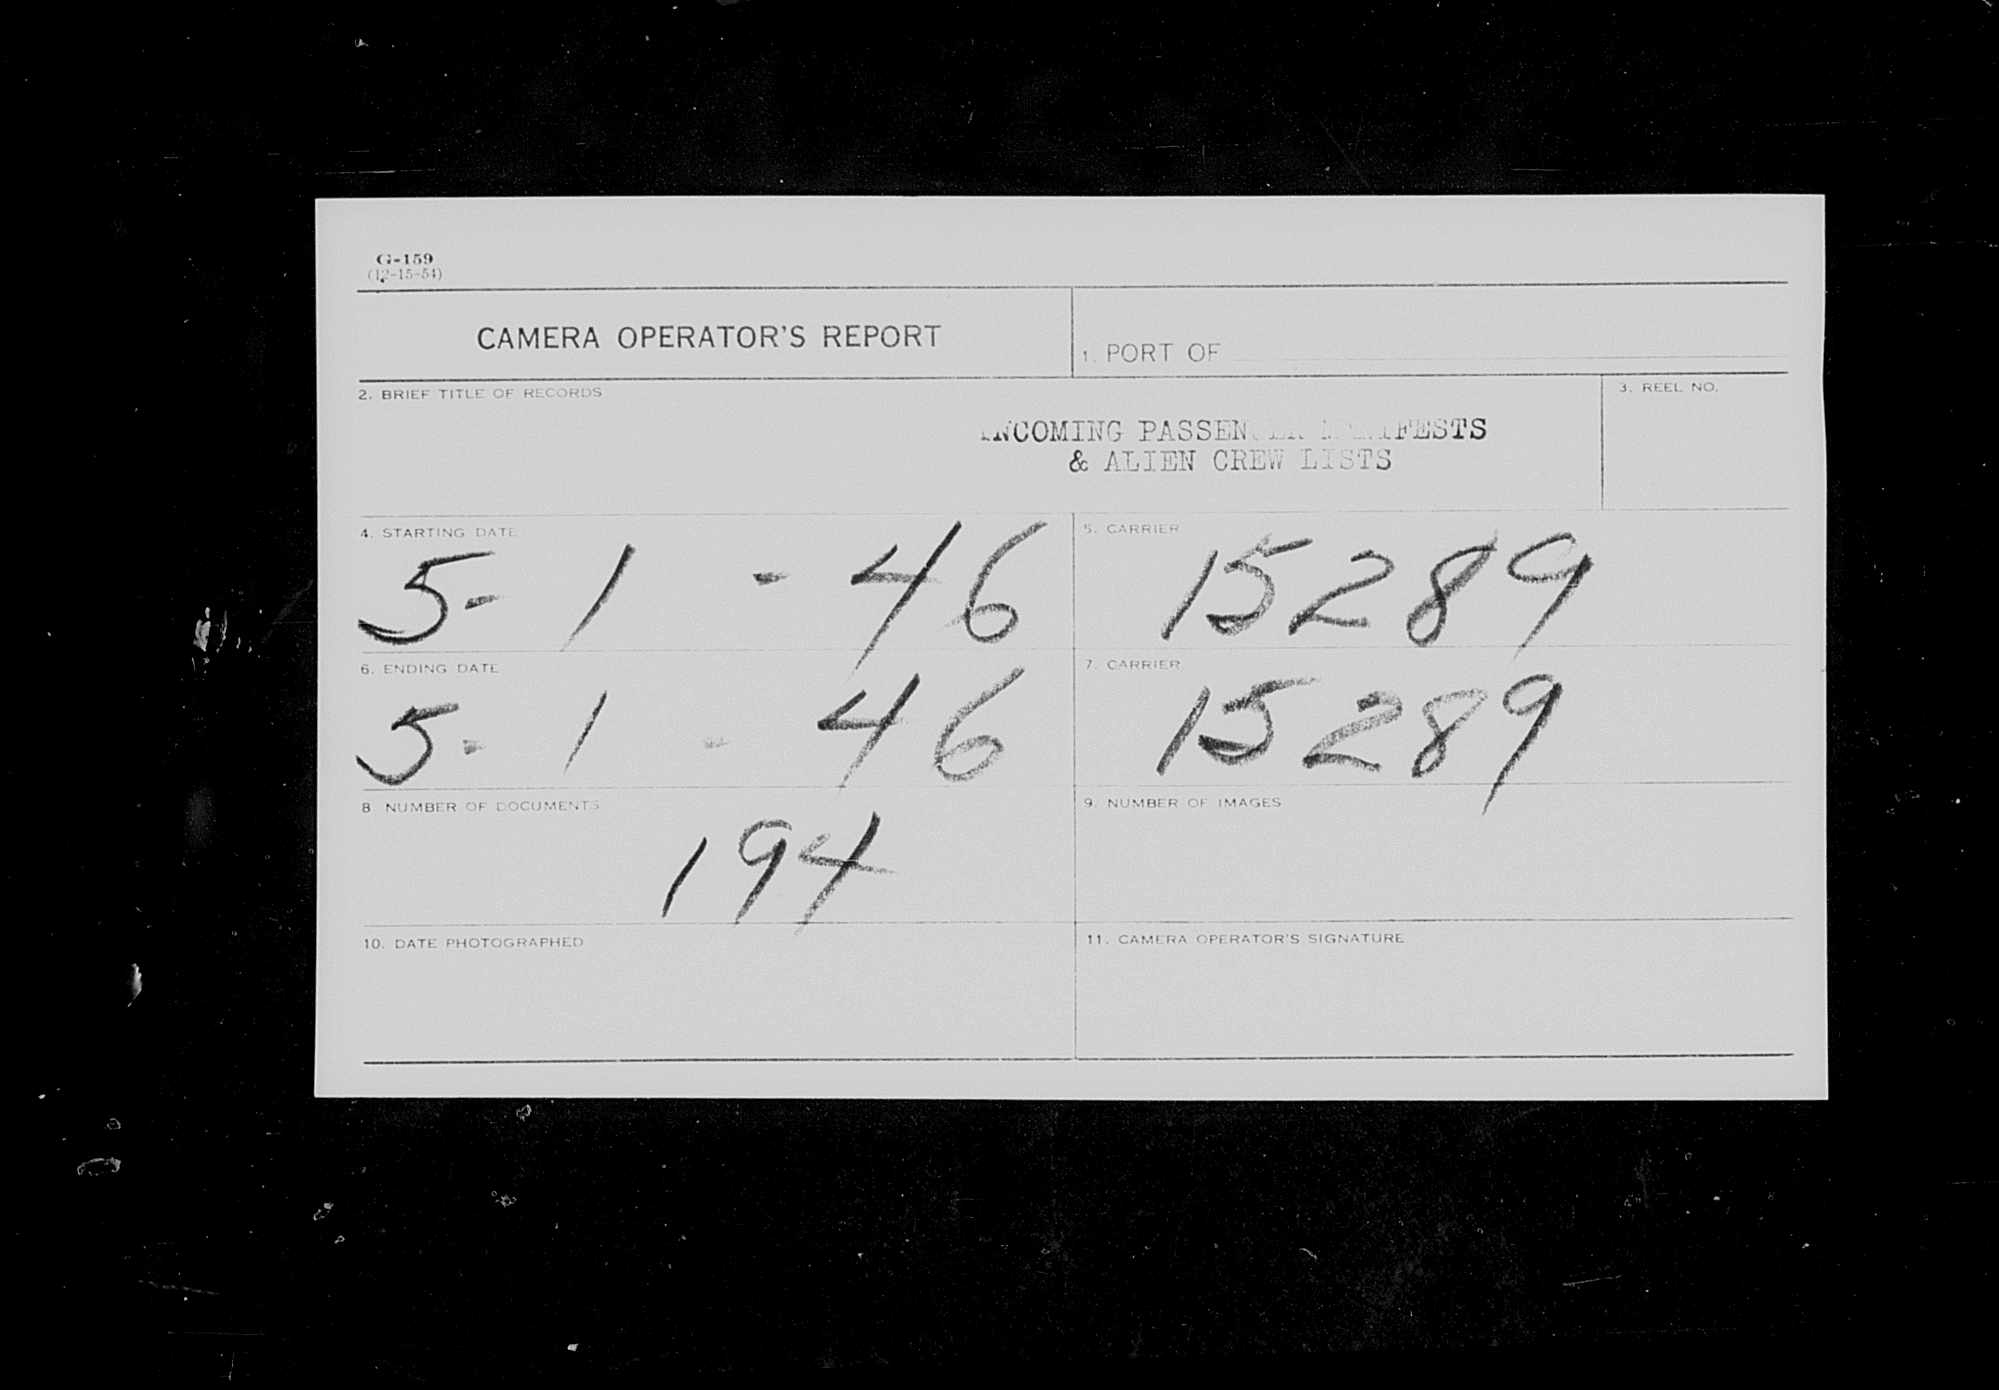 G-159
(12-15-54)
CAMERA OPERATOR'S REPORT
1. PORT OF
2. BRIEF TITLE OF RECORDS
3. REEL NO.
INCOMING PASSENGER MANIFESTS
& ALIEN CREW LISTS
4. STARTING DATE
5-1-46
5. CARRIER
15289
6. ENDING DATE
5-1-46
7. CARRIER
15289
8. NUMBER OF DOCUMENTS
194
9. NUMBER OF IMAGES
10. DATE PHOTOGRAPHED
11. CAMERA OPERATOR'S SIGNATURE